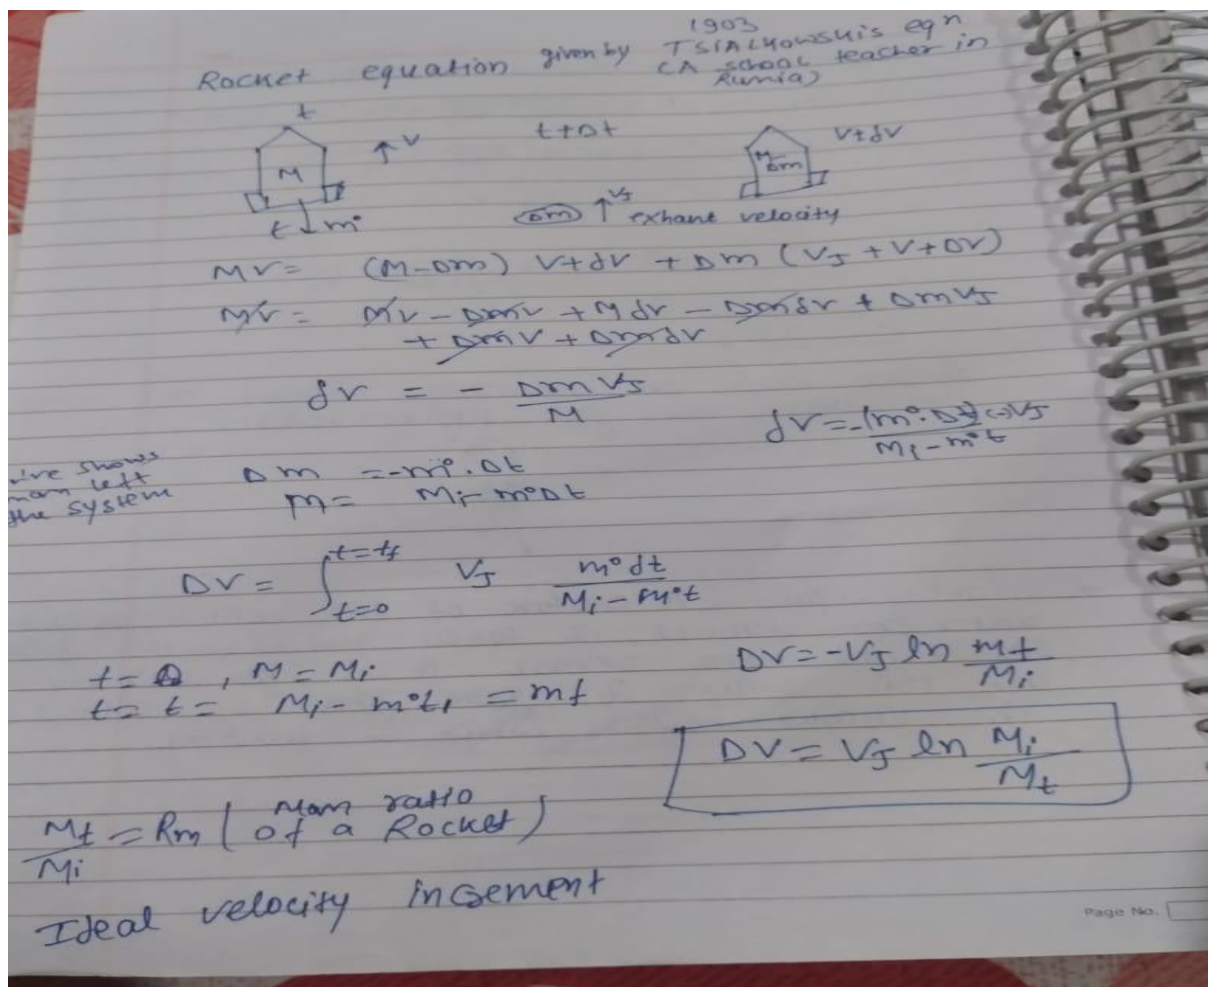 1903
Rocket equation given by TSIALKOWSKI's eqn
(A school teacher in
Russia)
t
M
↑ V
t ↓ m°
t+Δt
V+δV
M-Δm
Δm ↑ VJ exhaust velocity
MV = (M-Δm) V+δV + Δm (VJ + V + ΔV)
MV = MV - ΔmV + Mδv - Δmδv + ΔmVJ
+ ΔmV + Δmδv
δv = - ΔmVJ / M
δV = -(m°·Δt)(-)VJ / Mi - m°t
-ive shows
mass left
the system
Δm = -m°·Δt
m = Mi - m°Δt
ΔV = ∫ t=0 t=tf VJ m°δt / Mi - m°t
t=0, M = Mi
t = t = Mi - m°t1 = mf
ΔV = -VJ ln mf / Mi
ΔV = VJ ln Mi / Mf
Mf / Mi = Rm (Mass ratio
of a Rocket)
Ideal velocity increment
Page No.